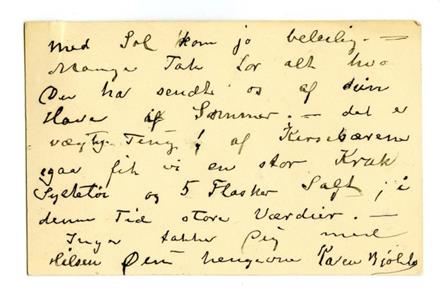 med Sol kom jo beleilig. —
Mange Tak for alt hva
Du ha sendt os af din
Have i Sommer. — det er
vægtige Ting! af Kirsebærene
fik vi en stor Kruk
Syltetøi og 5 Flasker Saft, i
denne Tid store Værdier. —
Inger takker Dig med
Hilsen Din hengivne Karen